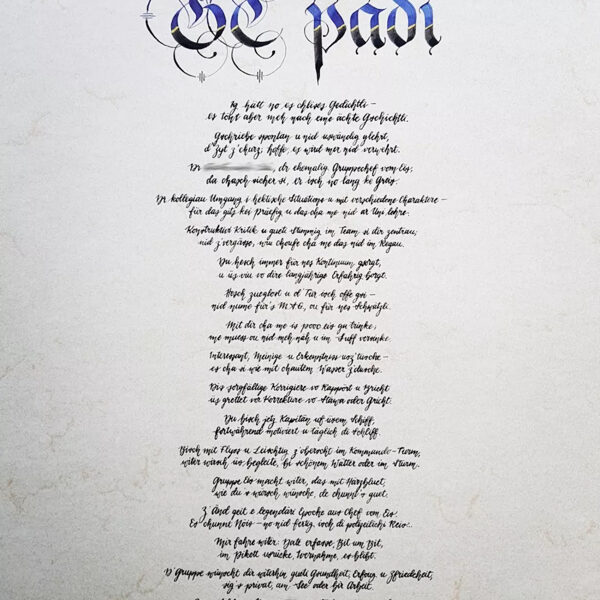 GC Pädi
Ig hätt no es chlises Gedichtli –
es tönt aber meh nach eine ächte Gschichtli.
Gschriebe spontan u nid uswändig glehrt,
d'Zyt z'churz; hoffe, es wird mer nid verwehrt.
Dr , dr ehemalig Gruppechef vom Eis;
da chasch sicher si, er isch no lang ke Greis.
Dr kollegiau Umgang i hektische Situations u mit verschiedene Charaktere –
für das gits kei Prüefig u das cha me nid ar Uni lehre.
Konstruktivi Kritik u gueti Stimmig im Team si dir zentrau,
nid z'vergässe, wiu choufe cha me das nid im Regau.
Du hesch immer für nes Kontinuum gsorgt,
u üs viu vo dire langjährige Erfahrig borgt.
Hesch zueglost u d'Tür isch offe gsi –
nid numme für's MAG, ou für nes Schwätzli.
Mit dir cha me is pooo eis ga trinke,
me muess ou nid meh näh u im Suff versinke.
Interessant, Meinige u Erkenntniss usz'tusche –
es cha si wie mit chautem Wasser z'dusche.
Dis sorgfältige Korrigiere vo Rappört u Bricht
üs grettet vor Korrekture vo Stawa oder Gricht.
Du bisch jetz Kapitän uf üsem Schiff,
fortwährend motiviert u täglich di Schliff.
Bisch mit Flyss u Leischtig z'oberscht im Kommando-Team,
witer wirsch üs begleite, bi schönem Wätter oder im Sturm.
Gruppe Eis macht witer, das mit Härzbluet,
wie du's warsch, wünsche, de chunnt's guet.
Z'Änd geit e legendäri Epoche aus Chef vom Eis.
Es chunnt Nöis – no nid fertig isch di polizeilichi Reis...
Mir fahre witer: Tält erfasse, Bit um Bit,
im Pikett usrücke, Ivernahme, es blibt.
D'Gruppe wünscht dir witerhin gueti Gsundheit, Erfoug u Zfriedeheit,
sig's privat, am See oder bir Arbeit.